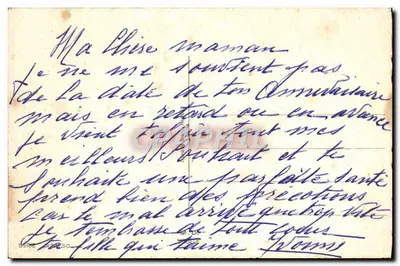 Ma Chère maman
je ne me souvient pas
de la date de ton Anniversaire
mais en retard ou en avance
je vient tous mes
meilleurs Souhait et te
Souhaite une parfaite santé
prend bien des précotions
car le mal arrive que trop vite
je t'embrasse de tout coeur
ta fille qui t'aime Yvonne